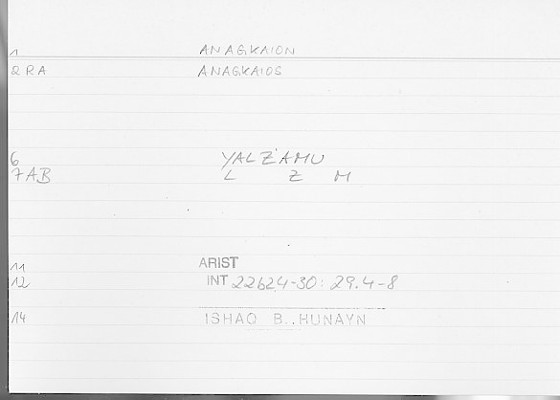 1 ANAGKAION
2 RA ANAGKAIOS
6 YALZAMU
7AB L Z M
11 ARIST
12 INT 22b24-30: 29.4-8
14 ISHAQ B. HUNAYN